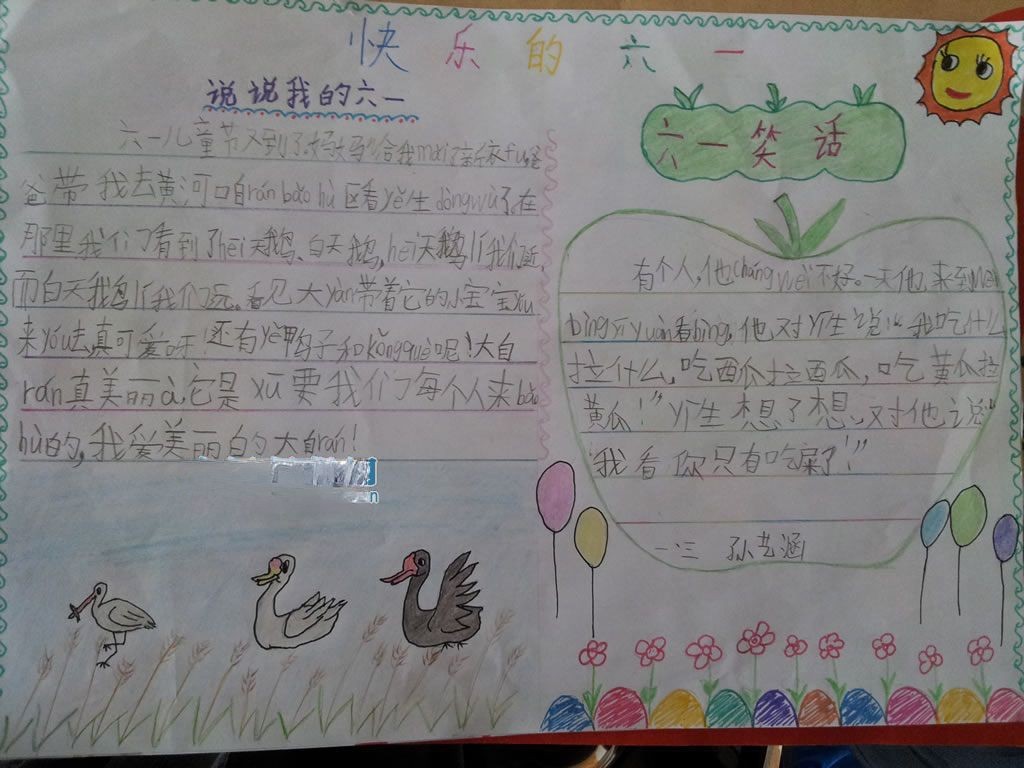 快乐的六一
说说我的六一
六一儿童节又到了,妈妈给我mǎi新衣fu,爸
爸带我去黄河口自rán bǎo hù区看yě生dòngwù了。在
那里我们看到了hēi天鹅、白天鹅,hēi天鹅lí我们近
而白天鹅lí我们远。看见大yàn带着它的小宝宝yóu
来yóu去真可爱呀!还有yě鸭子和kǒngquè呢!大自
rán真美丽à,它是xū要我们每个人来bǎo
hù的,我爱美丽的大自rán!
六一笑话
有个人,他cháng wèi不好。一天他,来到
bìng yuàn看bìng,他对yī生说:“我吃什么
拉什么,吃西瓜拉西瓜,吃黄瓜拉
黄瓜!”yī生想了想,对他说:
“我看你只有吃屎了!”
一.三 孙艺涵